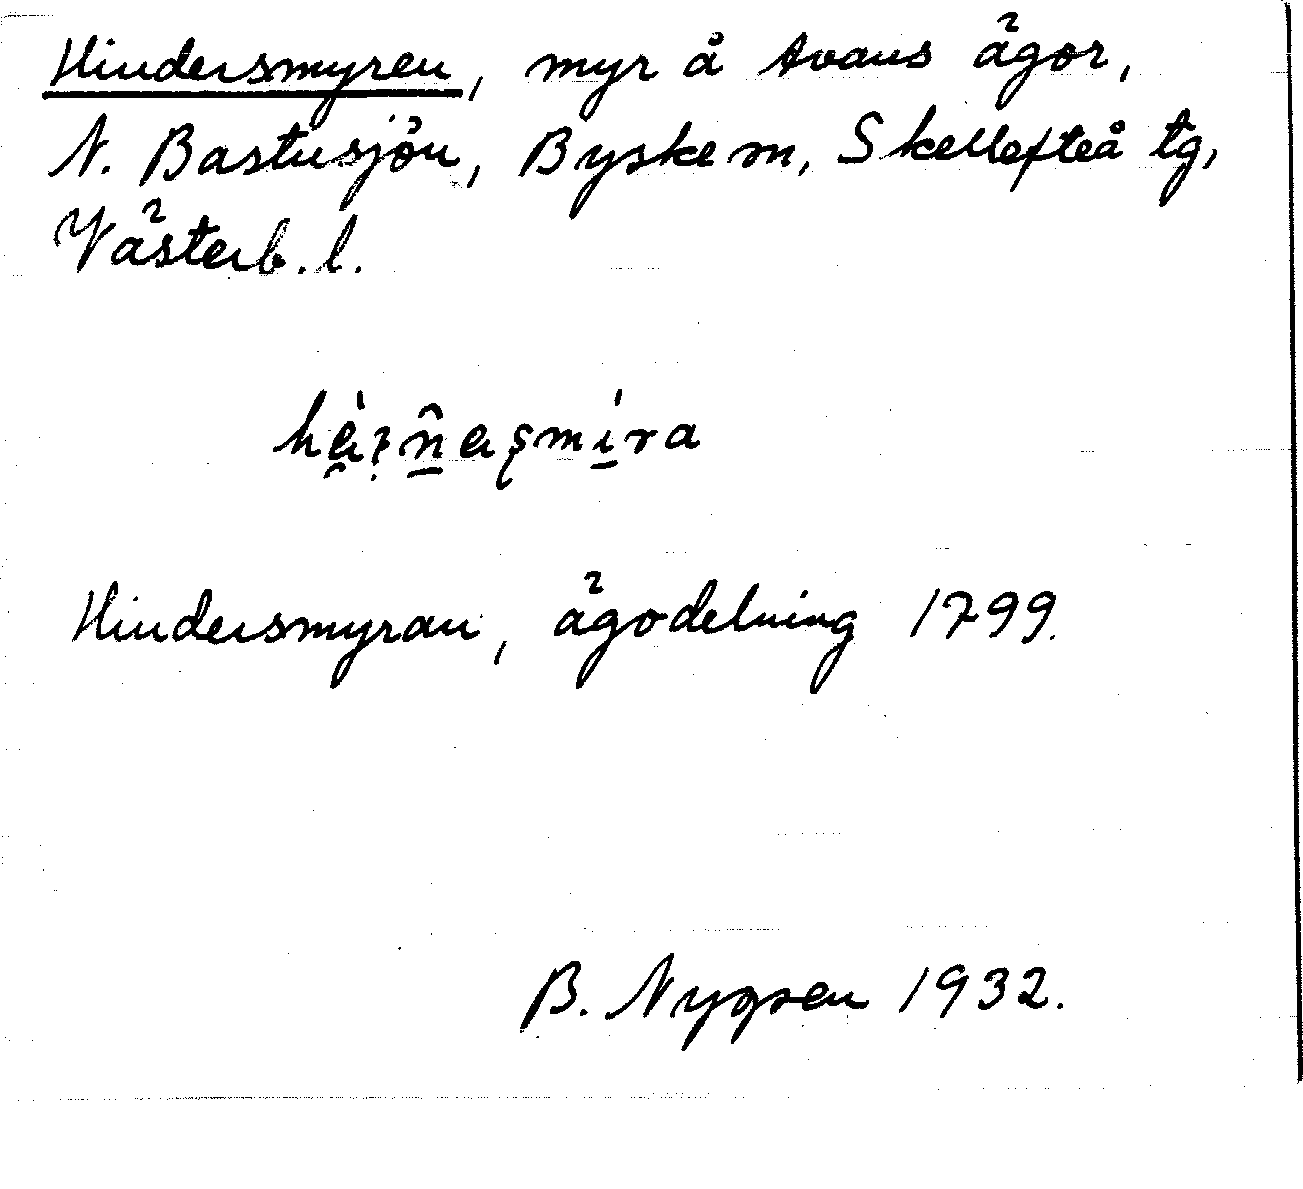 Hindersmyren, myr å Avans ägor,
N. Bastusjön, Byske sn, Skellefteå tg,
Västerb. l.
Hindersmyran, ägodelning 1799.
B. Nygren 1932.